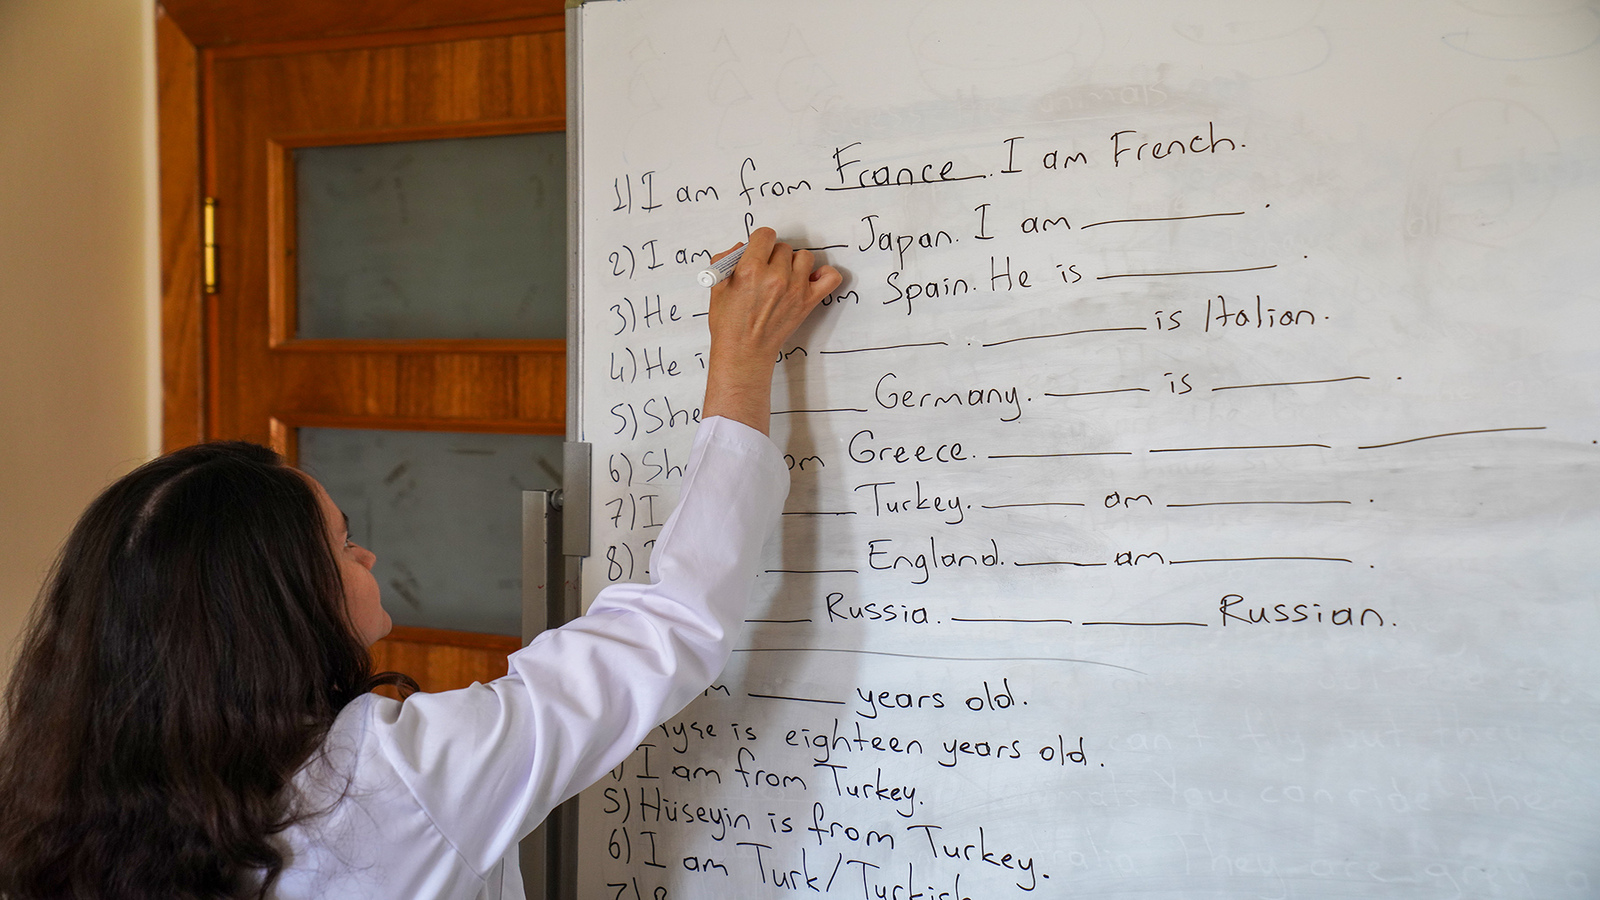 1) I am from France. I am French.
2) I am ____ Japan. I am ________.
3) He __ Spain. He is ________.
4) He ________. ________ is Italian.
5) She ____ Germany. ____ is ________.
6) Greece. ________ ________ ________.
7) I ____ Turkey. ____ am ________.
8) ____ England. ____ am ________.
____ Russia. ____ ____ Russian.
____ years old.
is eighteen years old.
I am from Turkey.
5) Hüseyin is from Turkey.
6) I am Turk/Turkish